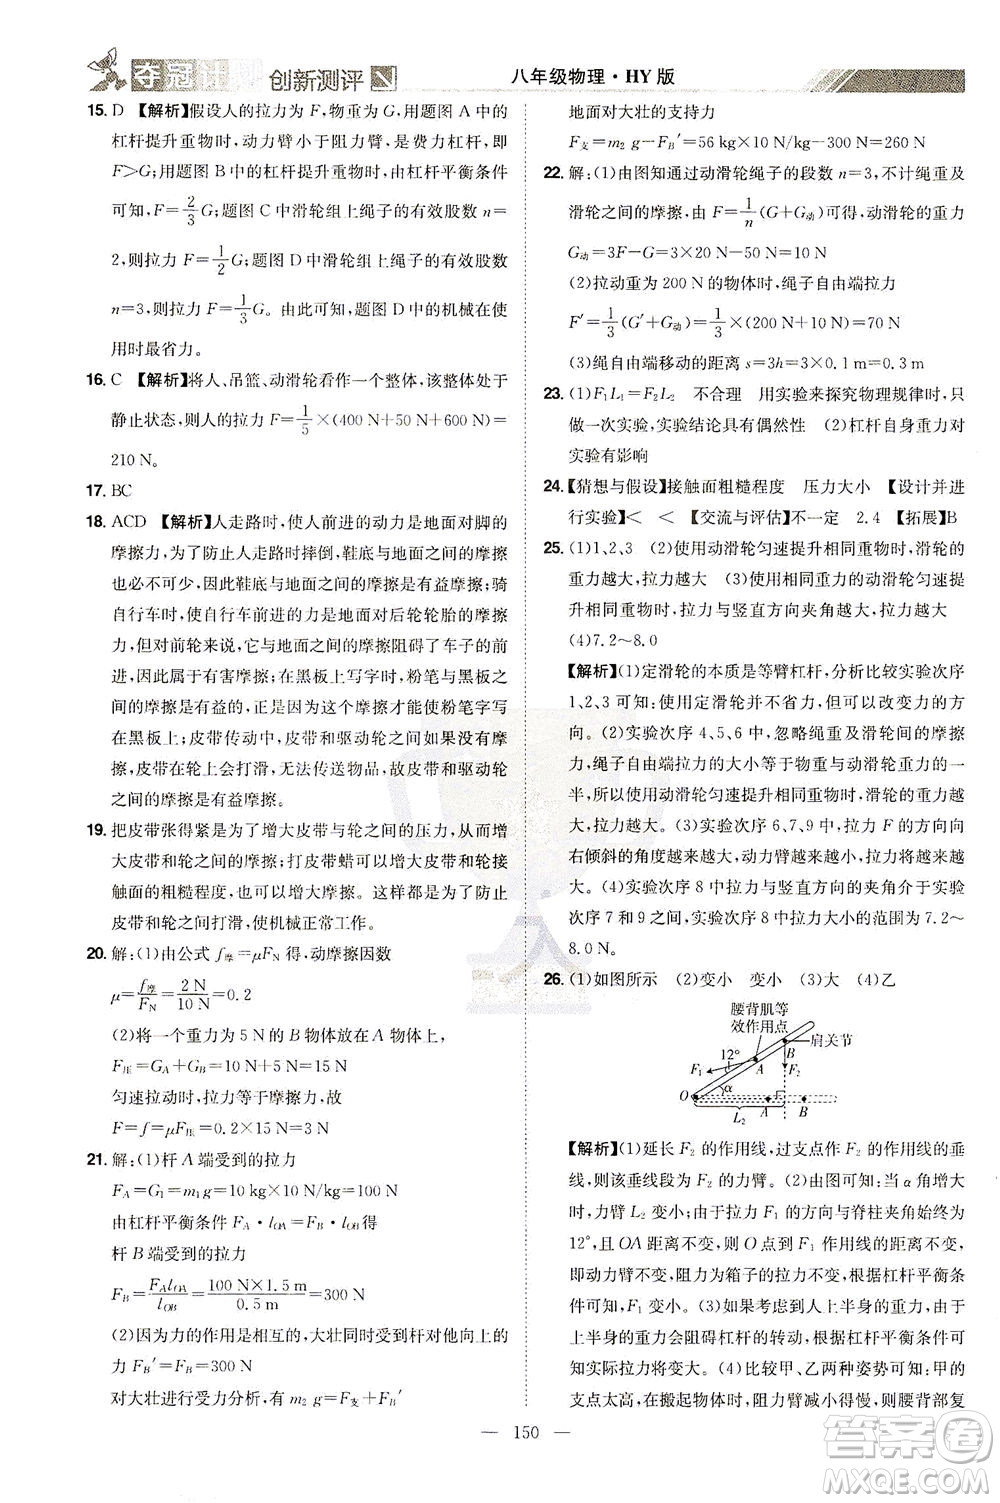 夺冠计划 创新测评
八年级物理·HY版
15. D 【解析】假设人的拉力为 F,物重为 G,用题图 A 中的
杠杆提升重物时,动力臂小于阻力臂,是费力杠杆,即
F>G;用题图 B 中的杠杆提升重物时,由杠杆平衡条件
可知,F=2/3G;题图 C 中滑轮组上绳子的有效股数 n=
2,则拉力 F=1/2G;题图 D 中滑轮组上绳子的有效股数
n=3,则拉力 F=1/3G。由此可知,题图 D 中的机械在使
用时最省力。
16. C 【解析】将人、吊篮、动滑轮看作一个整体,该整体处于
静止状态,则人的拉力 F=1/5×(400 N+50 N+600 N)=
210 N。
17. BC
18. ACD 【解析】人走路时,使人前进的动力是地面对脚的
摩擦力,为了不让人走路时摔倒,鞋底与地面之间的摩擦
也必不可少,因此鞋底与地面之间的摩擦是有益摩擦;骑
自行车时,使自行车前进的力是地面对后轮轮胎的摩擦
力,但对前轮来说,它与地面之间的摩擦阻碍了车子的前
进,此摩擦属于有害摩擦;在黑板上写字时,粉笔与黑板之
间的摩擦是有益的,正是这个摩擦才能使粉笔字写
在黑板上;皮带传动中,皮带和驱动轮之间如果没有摩
擦,皮带就会打滑,无法传送物品,故皮带和驱动轮之
间的摩擦是有益摩擦。
19. 把皮带张得紧是为了增大皮带与轮之间的压力,从而增
大皮带和轮之间的摩擦;打皮带蜡可以增大皮带和轮接
触面的粗糙程度,以增大摩擦。这样都是为了防止
皮带和轮之间打滑,使机械正常工作。
20. 解:(1)由公式 f摩=μFN 得,动摩擦因数
μ=f摩/FN=2 N/10 N=0.2
(2)将一个重力为 5 N 的 B 物体放在 A 物体上,
F压=GA+GB=10 N+5 N=15 N
匀速拉动时,拉力等于摩擦力,故
F=f=μF压=0.2×15 N=3 N
21. 解:(1)杆 A 端受到的拉力
FA=G1=m1g=10 kg×10 N/kg=100 N
由杠杆平衡条件 FA·lOA=FB·lOB 得
杆 B 端受到的拉力
FB=FAlOA/lOB=100 N×1.5 m/0.5 m=300 N
(2)因为力的作用是相互的,大壮同时受到杆对他向上的
力 FB′=FB=300 N
对大壮进行受力分析,有 m2g=F支+FB′
地面对大壮的支持力
F支=m2g−FB′=56 kg×10 N/kg−300 N=260 N
22. 解:(1)由图知通过动滑轮绳子的段数 n=3,不计绳重及
滑轮之间的摩擦,由 F=1/n(G+G动)可得,动滑轮的重力
G动=3F−G=3×20 N−50 N=10 N
(2)拉动重为 200 N 的物体时,绳子自由端拉力
F′=1/3(G′+G动)=1/3×(200 N+10 N)=70 N
(3)绳自由端移动的距离 s=3h=3×0.1 m=0.3 m
23. (1)F1L1=F2L2 不合理 用实验来探究物理规律时,只
做一次实验,实验结论具有偶然性 (2)杠杆自身重力对
实验有影响
24. 【猜想与假设】接触面粗糙程度 压力大小 【设计并进
行实验】< < 【交流与评估】不一定 2.4 【拓展】B
25. (1)1、2、3 (2)使用动滑轮匀速提升相同重物时,滑轮的
重力越大,拉力越大 (3)使用相同的动滑轮匀速提升
相同重物时,拉力与竖直方向夹角越大,拉力越大
(4)7.2~8.0
【解析】(1)定滑轮的本质是等臂杠杆,分析比较实验次序
1、2、3 可知,使用定滑轮并不省力,但可以改变力的方
向。(2)实验次序 4、5、6 中,忽略绳重及滑轮间的摩擦
力,绳子自由端拉力的大小等于物重与动滑轮重力的一
半,所以使用动滑轮匀速提升相同重物时,滑轮的重力越
大,拉力越大。(3)实验次序 6、7、9 中,拉力 F 的方向向
右倾斜的角度越来越大,动力臂越来越小,拉力越来越
大。(4)实验次序 8 中拉力与竖直方向的夹角介于实验
次序 7 和 9 之间,实验次序 8 中拉力大小的范围为 7.2~
8.0 N。
26. (1)如图所示 (2)变小 变小 (3)大 (4)乙
腰背肌等
效作用点
肩关节
12°
F1
A
B
F2
O
α
L2
A
B
【解析】(1)延长 F2 的作用线,过支点作 F2 的作用线的垂
线,则该垂线段为 F2 的力臂。(2)由图可知:当 α 角增大
时,力臂 L2 变小;由于拉力 F1 的方向与脊柱夹角始终为
12°,且 OA 距离不变,则 O 点到 F1 作用线的距离不变,
即动力臂不变,阻力为箱子的拉力不变,根据杠杆平衡条
件可知,拉力变小。(3)如果考虑到人上半身的重力,由于
上半身的重力会阻碍杠杆的转动,根据杠杆平衡条件可
知实际拉力将变大。(4)比较甲、乙两种姿势可知:甲的
支点太高,在搬起物体时,阻力臂变得非常大,则腰背部复
150
答案圈
MXQE.COM